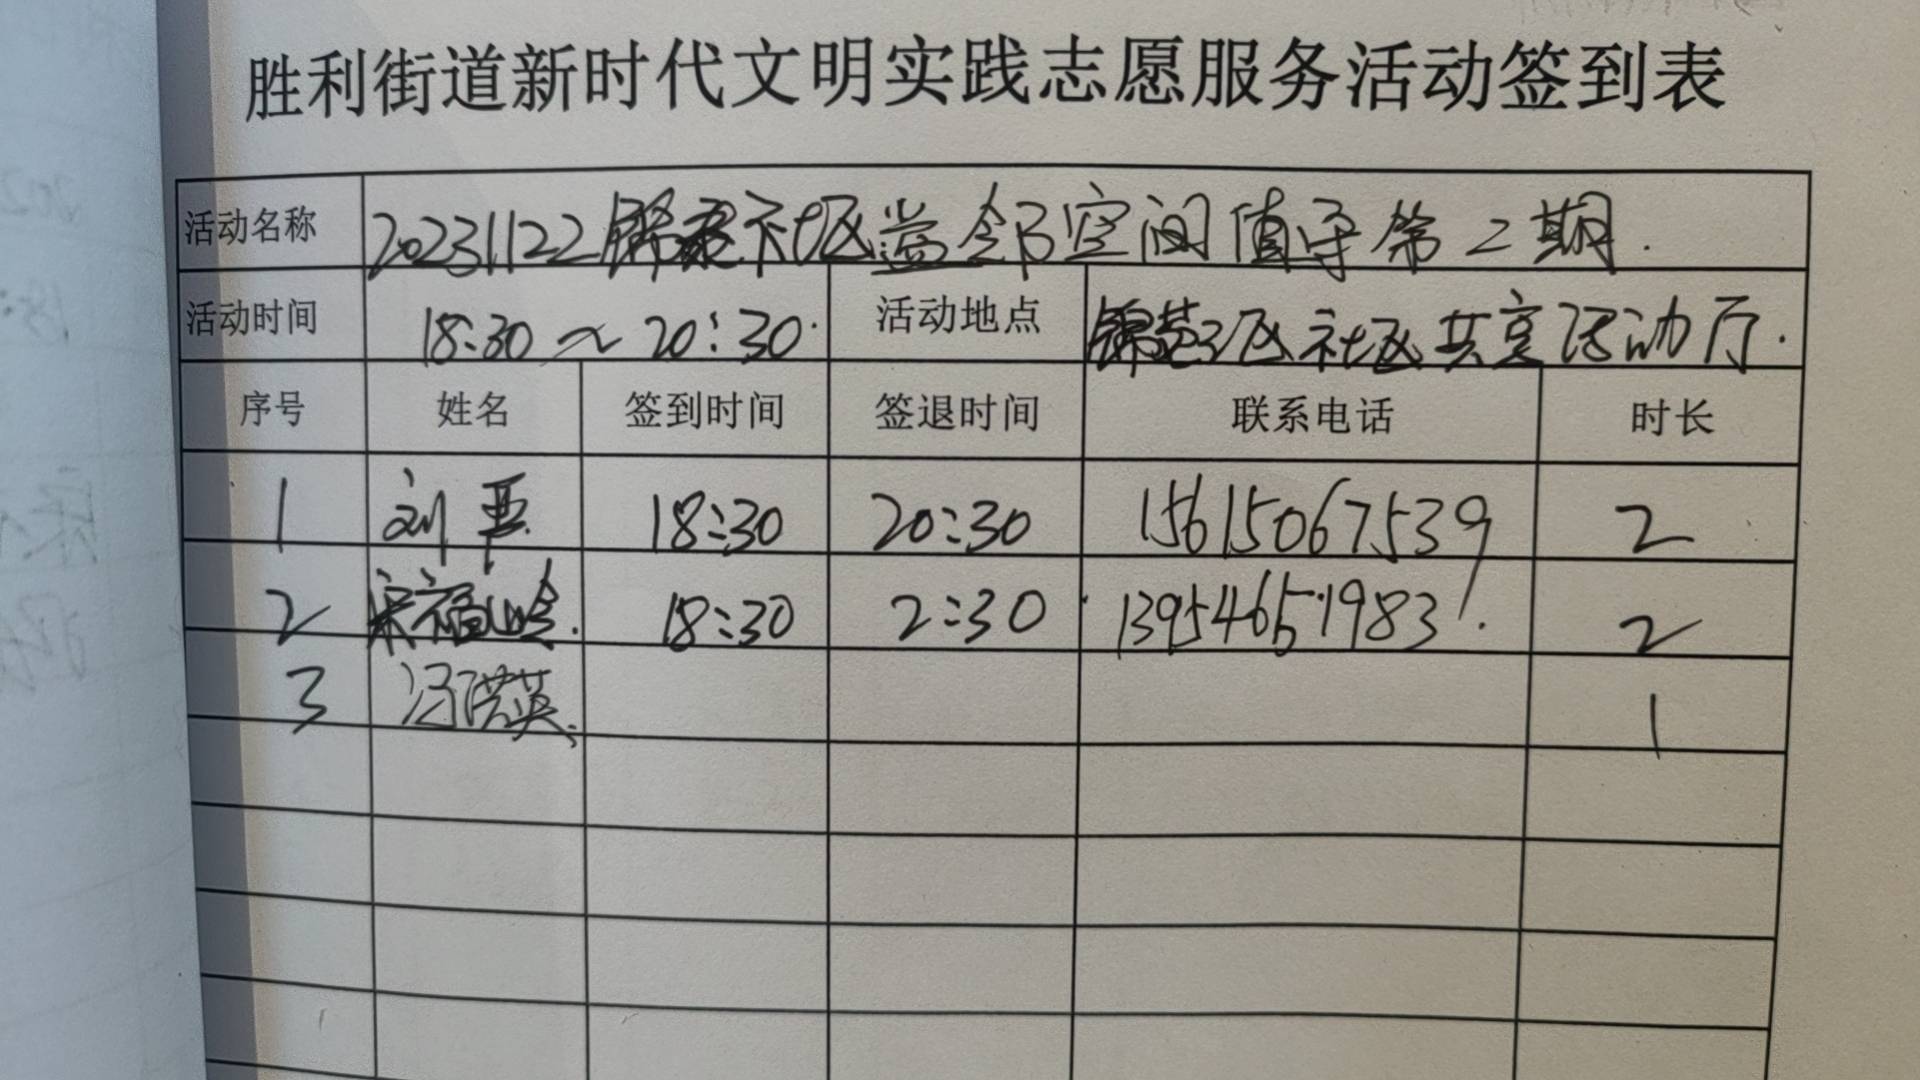 胜利街道新时代文明实践志愿服务活动签到表
活动名称 20231122锦苑社区益邻空间值守第2期.
活动时间 18:30~20:30. 活动地点 锦苑三区社区共享活动厅.
序号 姓名 签到时间 签退时间 联系电话 时长
1 刘亚 18:30 20:30 15615067539 2
2 宋福岭. 18:30 2:30 13954651983. 2
3 冯洪英. 1